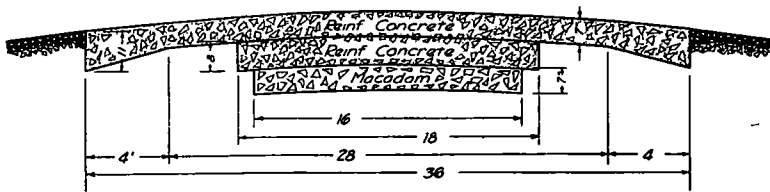 Reinf Concrete
Reinf Concrete
Macadam
11
8
16
18
4'
28
4
36